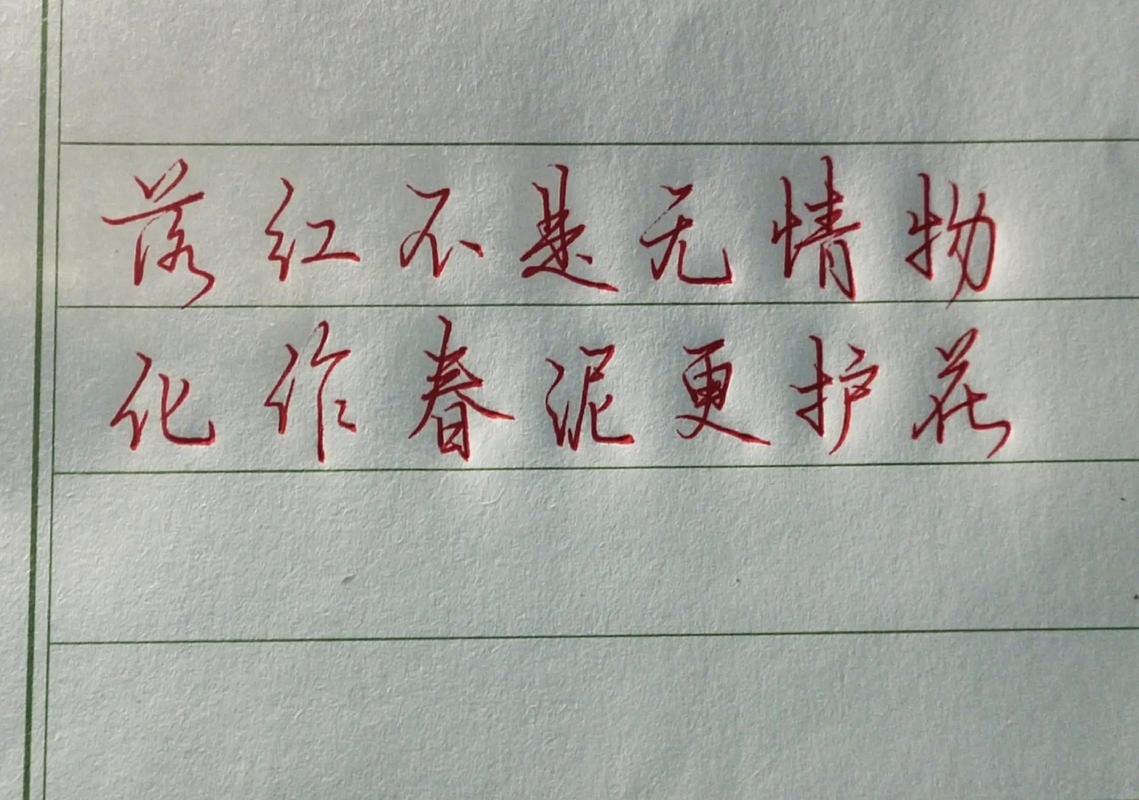 落红不是无情物
化作春泥更护花